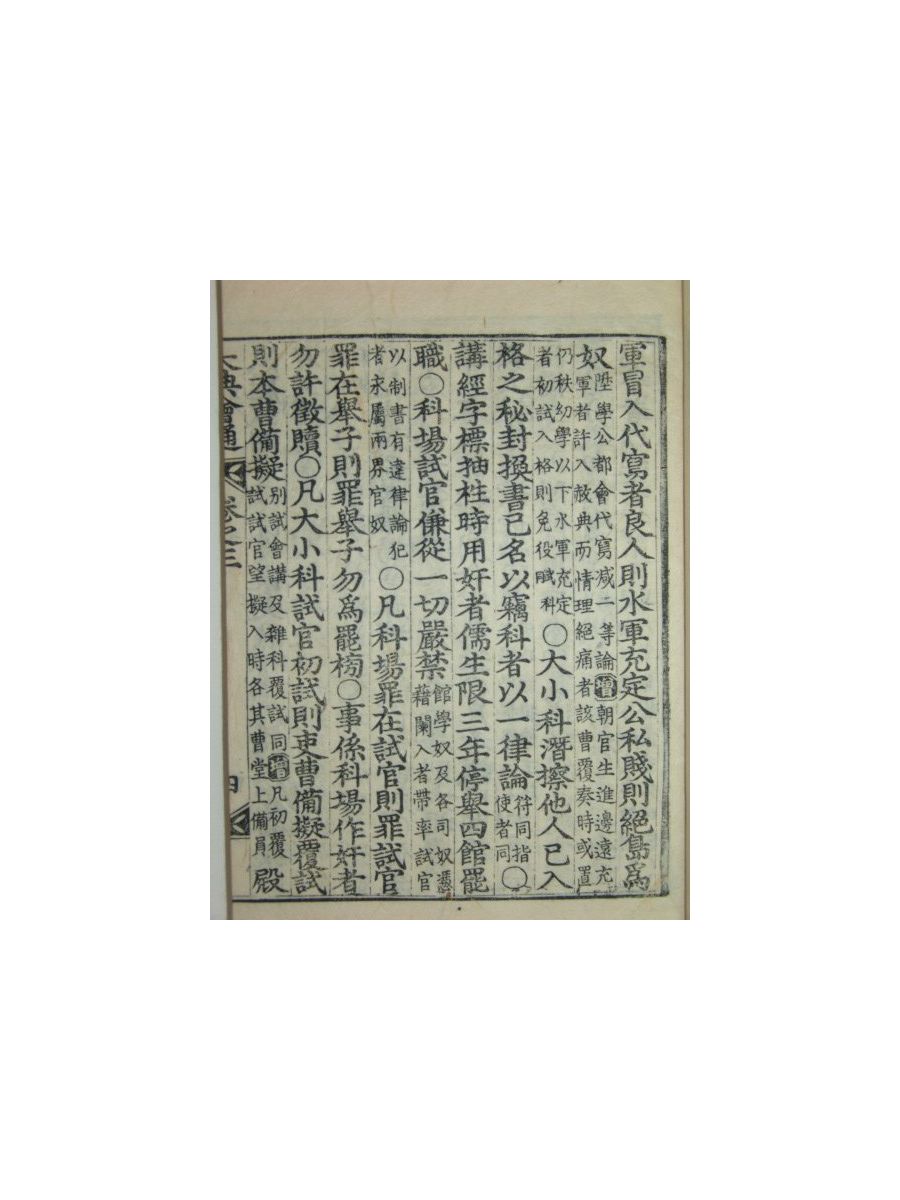 軍冒入代寫者良人則水軍充定公私賤則絕島爲
奴陞學公都會代寫减二等論增朝官生進邊遠充
軍者許入赦典而情理絕痛者該曹覆奏時或置
仍秩幼學以下水軍充定
者初試入格則免役賦科〇大小科潛擦他人已入
格之秘封換書已名以竊科者以一律論符同指
使者同〇
講經字標抽柱時用奸者儒生限三年停舉四館罷
職〇科場試官傔從一切嚴禁館學奴及各司奴憑
藉闌入者帶率試官
以制書有違律論犯
者永屬兩界官奴〇凡科場罪在試官則罪試官
罪在舉子則罪舉子勿爲罷榜〇事係科場作奸者
勿許徵贖〇凡大小科試官初試則吏曹備擬覆試
則本曹備擬別試會講及雜科覆試同增凡初覆
試試官望擬入時各其曹堂上備員殿
大典會通 卷之三 四